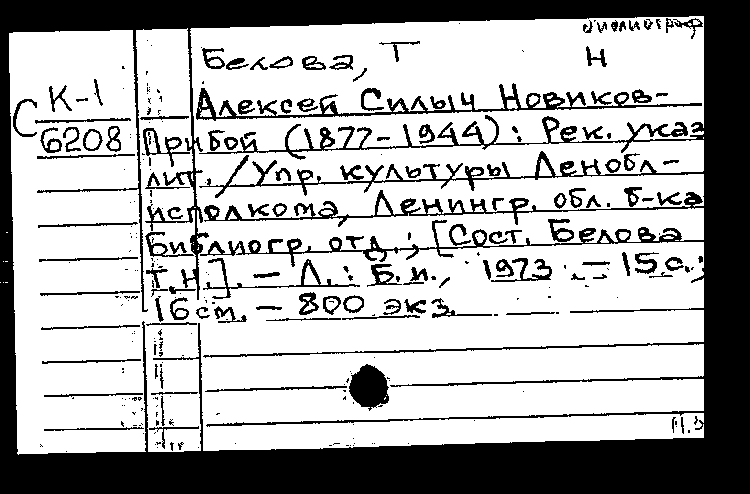 библиограф
Белова, Т Н
С К-1
6208
Алексей Силыч Новиков-
Прибой (1877-1944): Рек. указ
лит. / Упр. культуры Ленобл-
исполкома, Ленингр. обл. б-ка
Библиогр. отд.; [Сост. Белова
Т.Н.]. — Л.: Б.и., 1973. — 15 с.;
16 см. — 800 экз.